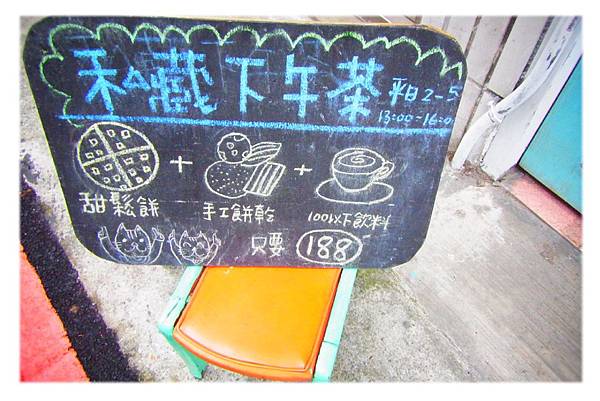 私藏下午茶 平日2-5
13:00-16:00
甜鬆餅 + 手工餅乾 + 100以下飲料
只要 188